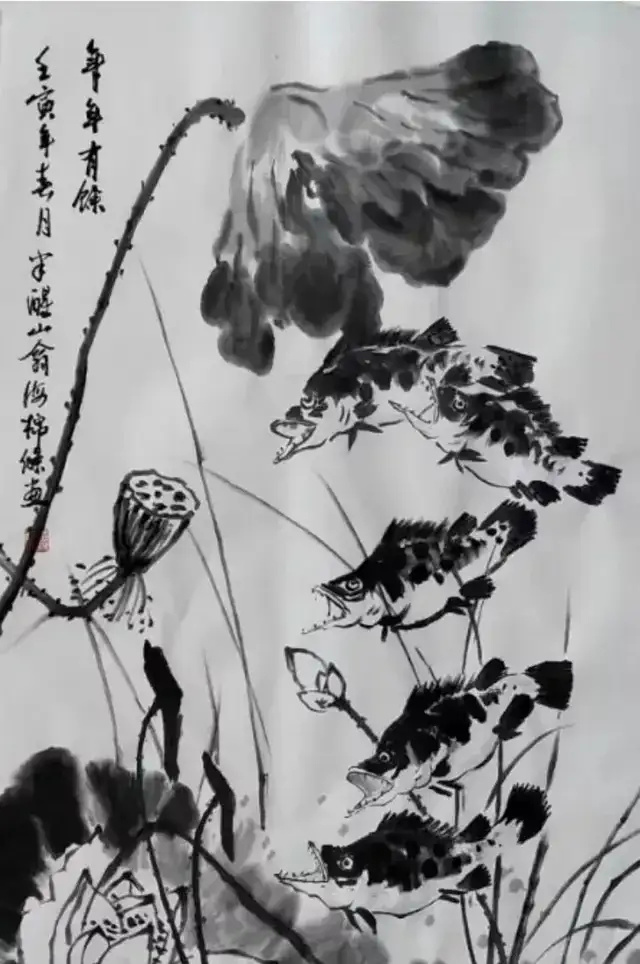 年年有馀
壬寅年春月半醒山翁海棉绦画